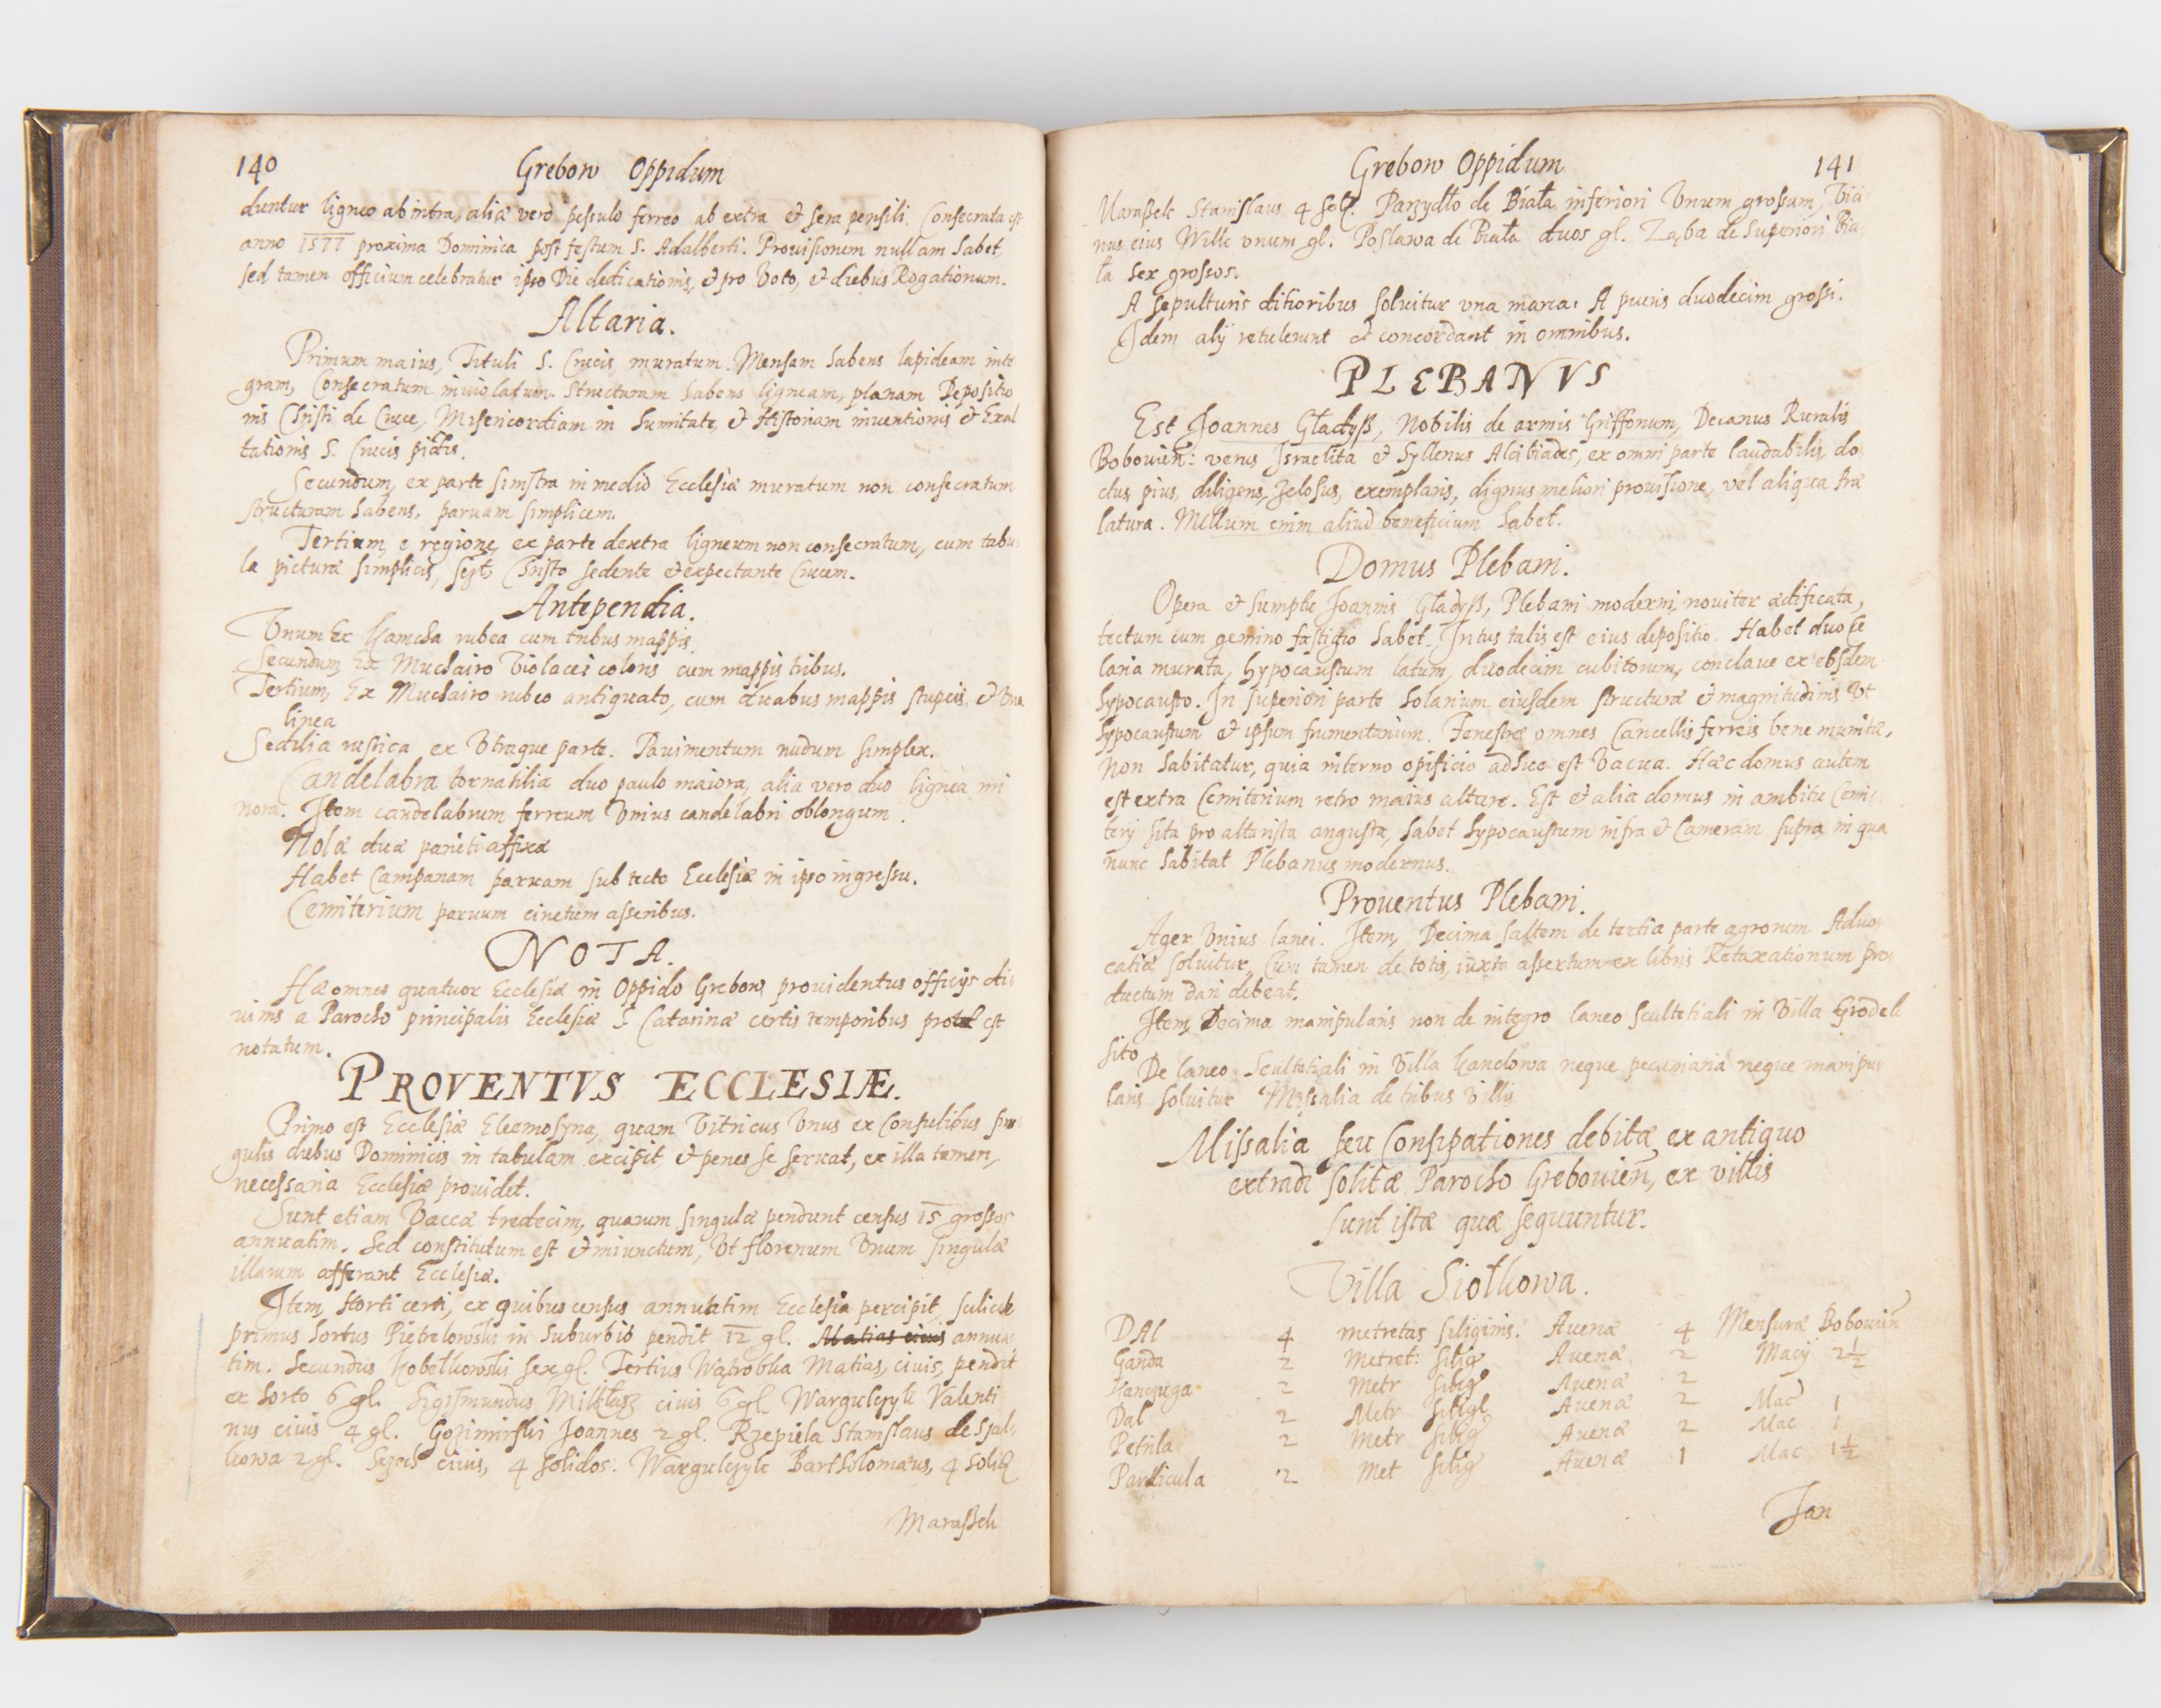 140 Grebow Oppidum
duntur ligneo ab intra, aliæ vero pessulo ferreo ab extra et sera pensili. Consecrata est
anno 1577 proxima Dominica post festum S. Adalberti. Prouisionem nullam habet,
sed tamen officium celebratur ipso Die dedicationis, et pro Voto, et diebus Rogationum.
Altaria.
Primum maius, Tituli S. Crucis, muratum. Mensam habens lapideam inte
gram, Consecratum inuiolatum. Structuram habens ligneam, planam Depositio
nis Christi de Cruce, Misericordiam in Sumitate, et Historiam inuentionis et Exal
tationis S. Crucis pictis.
Secundum, ex parte sinistra in medio Ecclesiæ muratum non consecratum
structuram habens, paruam simplicem.
Tertium, e regione, ex parte dextra ligneum non consecratum, cum tabu
la picturæ simplicis, Christo sedente et expectante Crucem.
Antependia.
Vnum Ex Kamcha rubea cum tribus mappis.
Secundum, Ex Muchairo Violacei coloris cum mappis tribus.
Tertium, Ex Muchairo rubeo antiquato, cum duabus mappis stupeis, et Vna
linea
Sedilia rustica ex Vtraque parte. Pauimentum nudum simplex.
Candelabra tornatilia duo paulo maiora, alia vero duo lignea mi
nora. Item candelabrum ferreum Vnius candelabri oblongum.
Nolæ duæ parieti affixæ
Habet Campanam paruam sub tecto Ecclesiæ in ipso ingressu.
Cemiterium paruum cinctum asseribus.
NOTA.
Hæ omnes quatuor Ecclesiæ in Oppido Grebow, prouidentus officijs di
uinis a Parocho principalis Ecclesiæ S. Catarinæ certis temporibus est
notatum.
PROVENTVS ECCLESIÆ.
Primo est Ecclesiæ Eleemosyna, quam Vitricus Vnus ex Consulibus sin
gulis diebus Dominicis in tabulam excipit, et penes se seruat, ex illa tamen,
necessaria Ecclesiæ prouidet.
Sunt etiam Vaccæ tredecim, quarum singulæ pendunt census 15 grossos
annuatim. Sed constitutum est et iniunctum, Vt florenum Vnum singulæ
illarum afferant Ecclesiæ.
Item, Horti certi, ex quibus census annuatim Ecclesia percipit, scilicet
primus hortus Pietrlowski in Suburbio pendit 12 gl. Matias ciuis annua
tim. Secundus Kobelkowski sex gl. Tertius Wątrobka Matias, ciuis, pendit
ex horto 6 gl. Sigismundus Mikłasz ciuis 6 gl. Wargulczyk Valenti
nus ciuis 4 gl. Gozimirski Joannes 2 gl. Rzepiela Stanislaus de Szal
kowa 2 gl. ciuis, 4 solidos. Wargulczyk Bartholomæus, 4 solid
Marassek
Grebow Oppidum 141
Marassek Stanislaus 4 Sol. Parzydło de Biała inferiori Vnum grossum,
nus eius Wilk vnum gl. Poslawa de Biała duos gl. Ząba de Superiori Bia
ła sex grossos.
A sepulturis ditioribus soluitur vna marca. A pueris duodecim grossi.
Idem alij retulerunt et concordant in omnibus.
PLEBANVS
Est Joannes Gładyß, Nobilis de armis Griffonum, Decanus Ruralis
Bobouien: verus Israelita et Syllenus Alcibiades, ex omni parte laudabilis, do
ctus, pius, diligens, Zelosus, exemplaris, dignus meliori prouisione, vel aliqua præ
latura. Nullum enim aliud beneficium habet.
Domus Plebani.
Opera et sumptu Joannis Gładyß, Plebani moderni, nouiter ædificata,
tectum cum gemino fastigio habet. Intus talis est eius depositio. Habet duo ce
laria murata, hypocaustum latum, duodecim cubitorum, conclaue ex eodem
hypocausto. In superiori parte Solarium eiusdem structuræ et magnitudinis Vt
hypocaustum et ipsum frumentarium. Fenestræ omnes Cancellis ferreis bene munitæ,
non habitatur, quia interno opificio adhuc est Vacua. Hæc domus autem
est extra Cemiterium retro maius altare. Est et alia domus in ambitu Cemi
terij sita pro altarista angusta, habet hypocaustum infra et Cameram supra, in qua
nunc habitat Plebanus modernus.
Prouentus Plebani.
Ager Vnius lanei. Item, Decima saltem de tertia parte agrorum Aduo
catiæ soluitur, Cum tamen de totis, iuxta assertum ex libris Retaxationum pro
ductum dari debeat.
Item, Decima manipularis non de integro laneo scultetiali in Villa Grodek
sito
De laneo Scultetiali in Villa Kanclowa neque pecuniaria neque manipu
laris soluitur Missalia de tribus Villis
Missalia seu Consipationes debitæ, ex antiquo
extradi solitæ Parocho Grebouien, ex villis
sunt istæ quæ sequuntur.
Villa Siołkowa.
DAl 4 metretas siliginis. Auenæ 4 Mensuræ Bobouien
Ganda 2 Metret: silig Auenæ 2 Macij 2½
Hanczuga 2 Metr silig Auenæ 2
Dal 2 Metr silig Auenæ 2 Mac 1
Petrila 2 Metr silig Auenæ 2 Mac 1
Particula 2 Met silig Auenæ 1 Mac 1½
Jan